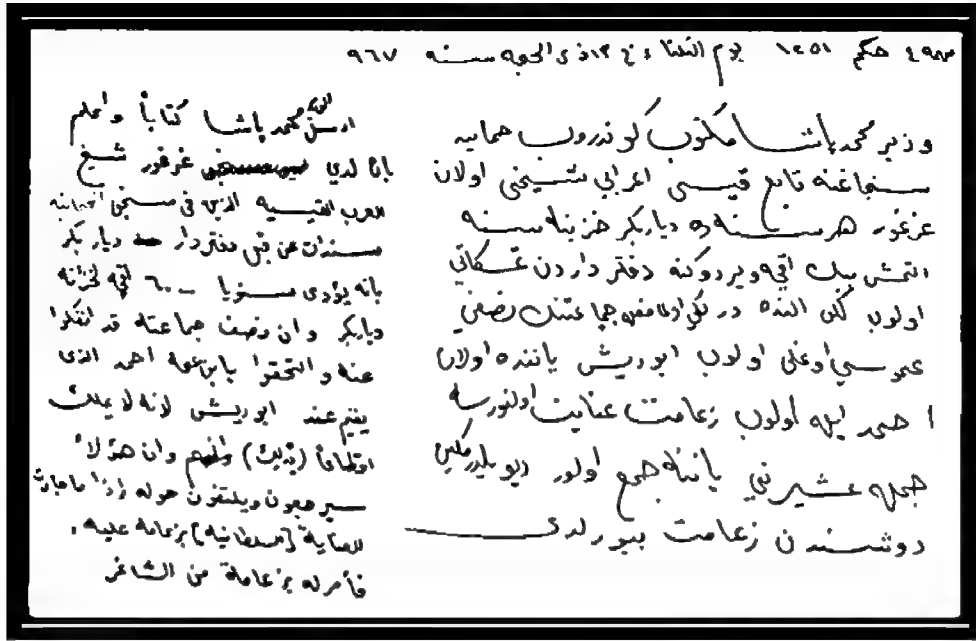 حكم ١٢٥١ يوم الثلثاء في ١٣ ذى الحجه سنه ٩٦٧
وزير محمد پاشا مكتوب كوندروب حمايه
سنجاغنه تابع قيسى اعرابي شيخى اولان
غزغور هر سنه ده دياربكر خزينه سنه
التمش بيك اقچه ويردوكنه دفتر داردن تمسكاتي
اولوب لكن النده جماعتنك نصفي
عموسي اوغلى اولوب ابو ريش ياننده اولان
احمد ايله اولوب زعامت عنايت اولنورسه
جمله عشيرتي ياننه جمع اولور ديو بلدرمكين
دوشندن زعامت بيورلدى
ارسل محمد باشا كتاباً واعلم
بانا لدي غزغور شيخ
العرب القيسيه الذي في سنجق
سندات من قبل دفتردار دياربكر
بانه يؤدى سنويا اقچه لخزانة
دياربكر وان نصف جماعته قد انفكوا
عنه والتحقوا بابن عمه احمد الذى
يقيم عند ابو ريش لانه لا يملك
اقطاعاً وان هؤلاء
سيرجعون ويلتفون حوله اذا ما جادت
العناية [السلطانيه] بزعامة عليه .
فأمر له بزعامة من الشاغر